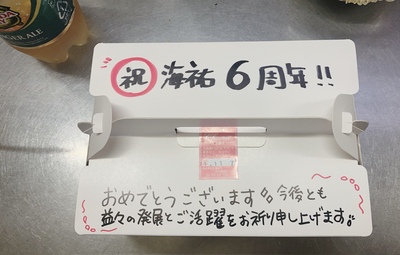 祝 海祐 6周年!!
おめでとうございます 今後とも
益々の発展とご活躍をお祈り申し上げます
GER ALE